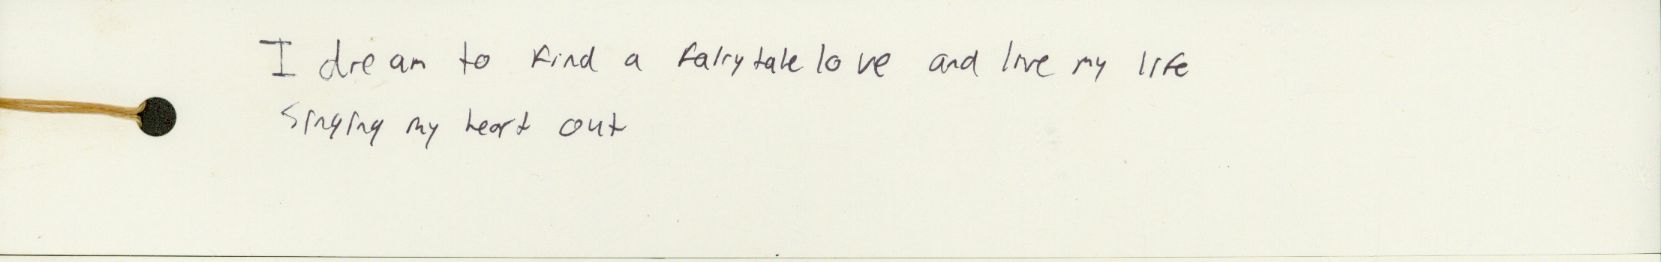 I dream to find a fairytale love and live my life
singing my heart out